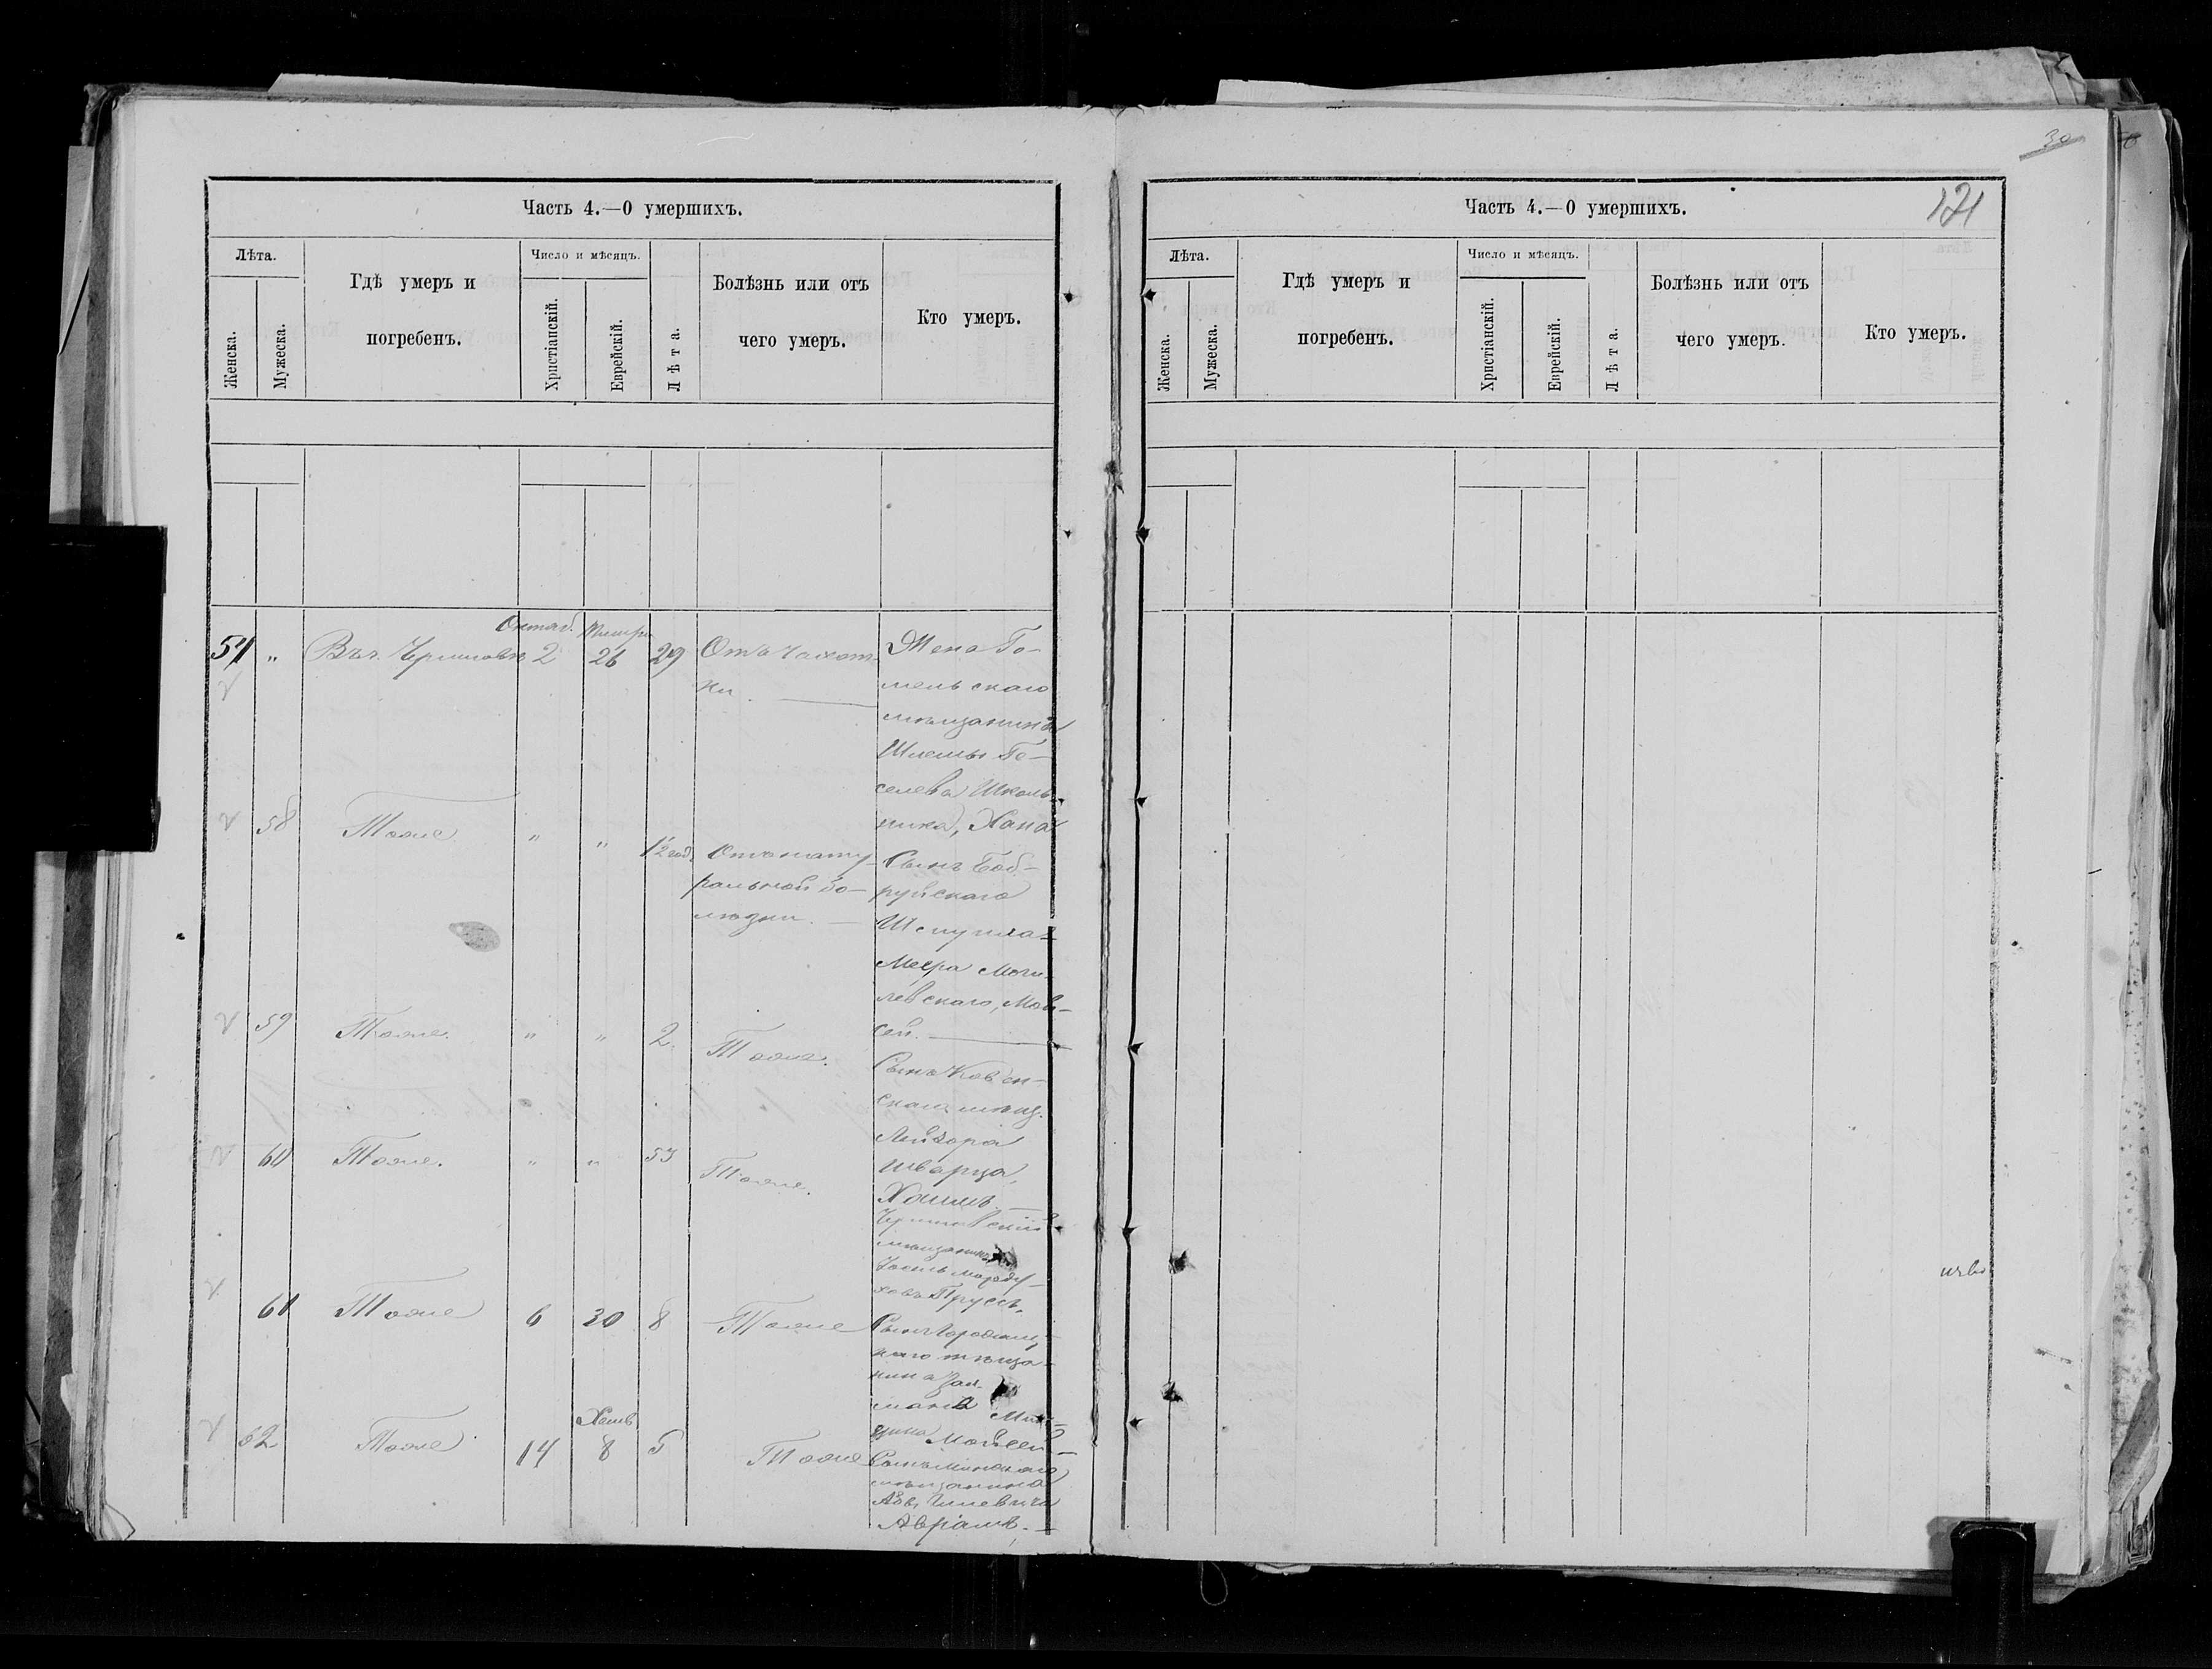 30
Часть 4.—О умершихъ.
Лѣта.
Женска.
Мужеска.
Гдѣ умеръ и
погребенъ.
Число и мѣсяцъ.
Христіанскій.
Еврейскій.
Лѣта.
Болѣзнь или отъ
чего умеръ.
Кто умеръ.
Октяб. Тишри
"
Въ г. Черниговѣ
2
26
29
Отъ чахот-
ки.
Жена Го-
мельскаго
мѣщанина
Шлемы
селева Школь-
ника, Хана
58
Тоже
"
"
1½ год.
Отъ нату-
ральной бо-
лѣзни.
Сынъ Боб-
руйскаго
Меера Моги-
левскаго, Мов-
сей.
59
Тоже.
"
"
2.
Тоже.
Сынъ Ковен-
скаго мѣщ.
Лейзора
Шварца,
Хаимъ.
60
Тоже.
"
"
53
Тоже.
Черниговскій
мѣщанинъ
Морду-
ховъ Прусъ.
61
Тоже
6
30
8
Тоже
Сынъ Городниц-
каго мѣща-
нина Зал-
мана
Мойсей
Хешв.
62
Тоже
14
8
5
Тоже
Сынъ Минскаго
мѣщанина
Абр.
Аврамъ.
Часть 4.—О умершихъ.
121
Лѣта.
Женска.
Мужеска.
Гдѣ умеръ и
погребенъ.
Число и мѣсяцъ.
Христіанскій.
Еврейскій.
Лѣта.
Болѣзнь или отъ
чего умеръ.
Кто умеръ.